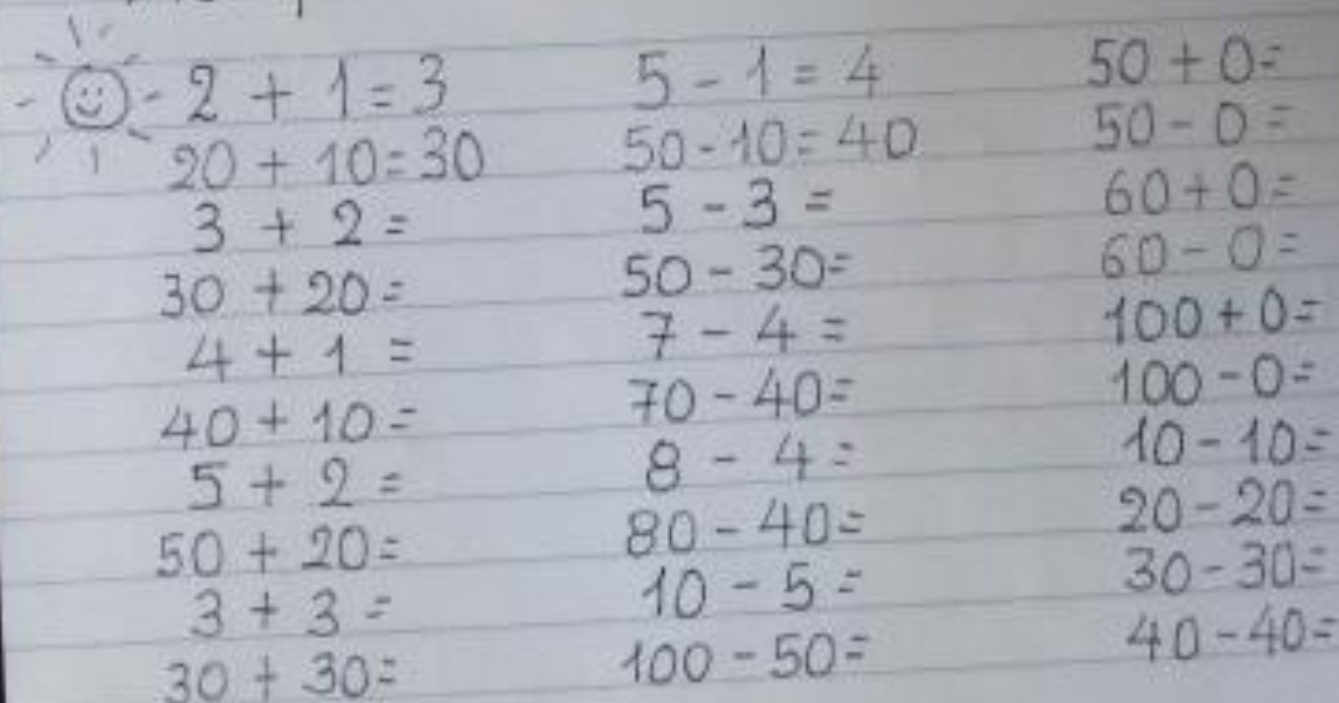 2 + 1 = 3
20 + 10 = 30
3 + 2 =
30 + 20 =
4 + 1 =
40 + 10 =
5 + 2 =
50 + 20 =
3 + 3 =
30 + 30 =
5 - 1 = 4
50 - 10 = 40
5 - 3 =
50 - 30 =
7 - 4 =
70 - 40 =
8 - 4 =
80 - 40 =
10 - 5 =
100 - 50 =
50 + 0 =
50 - 0 =
60 + 0 =
60 - 0 =
100 + 0 =
100 - 0 =
10 - 10 =
20 - 20 =
30 - 30 =
40 - 40 =